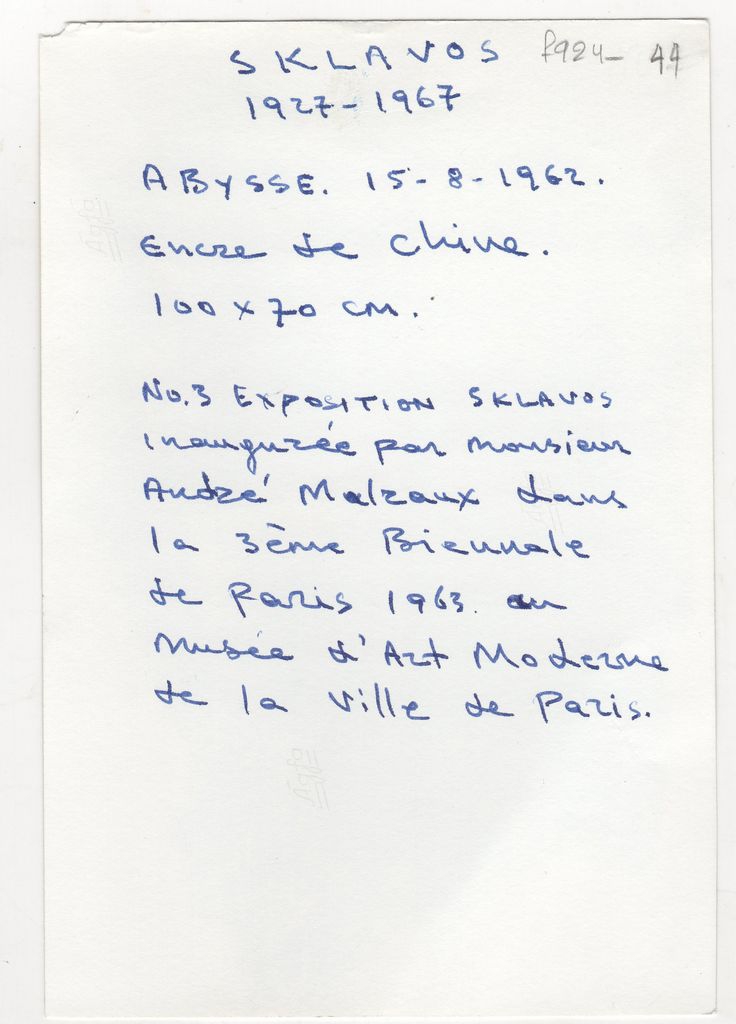 SKLAVOS
f924- 44
1927-1967
ABYSSE. 15-8-1962.
Encre de Chine.
100 x 70 cm.
No.3 EXPOSITION SKLAVOS
inaugurée par monsieur
André Malraux dans
la 3ème Biennale
de Paris 1963. au
Musée d'Art Moderne
de la Ville de Paris.
Agfa
Agfa